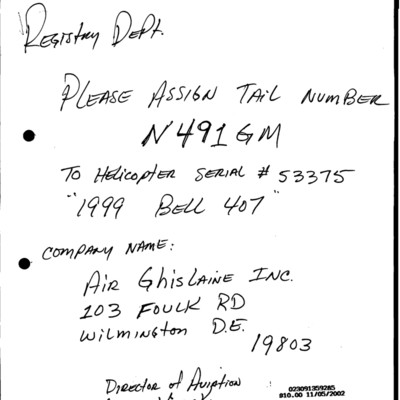 Registry Dept.
Please Assign Tail Number
N491GM
To Helicopter Serial # 53375
"1999 Bell 407"
Company Name:
Air Ghislaine Inc.
103 Foulk RD
Wilmington D.E.
19803
Director of Aviation
023091359285
$10.00 11/05/2002